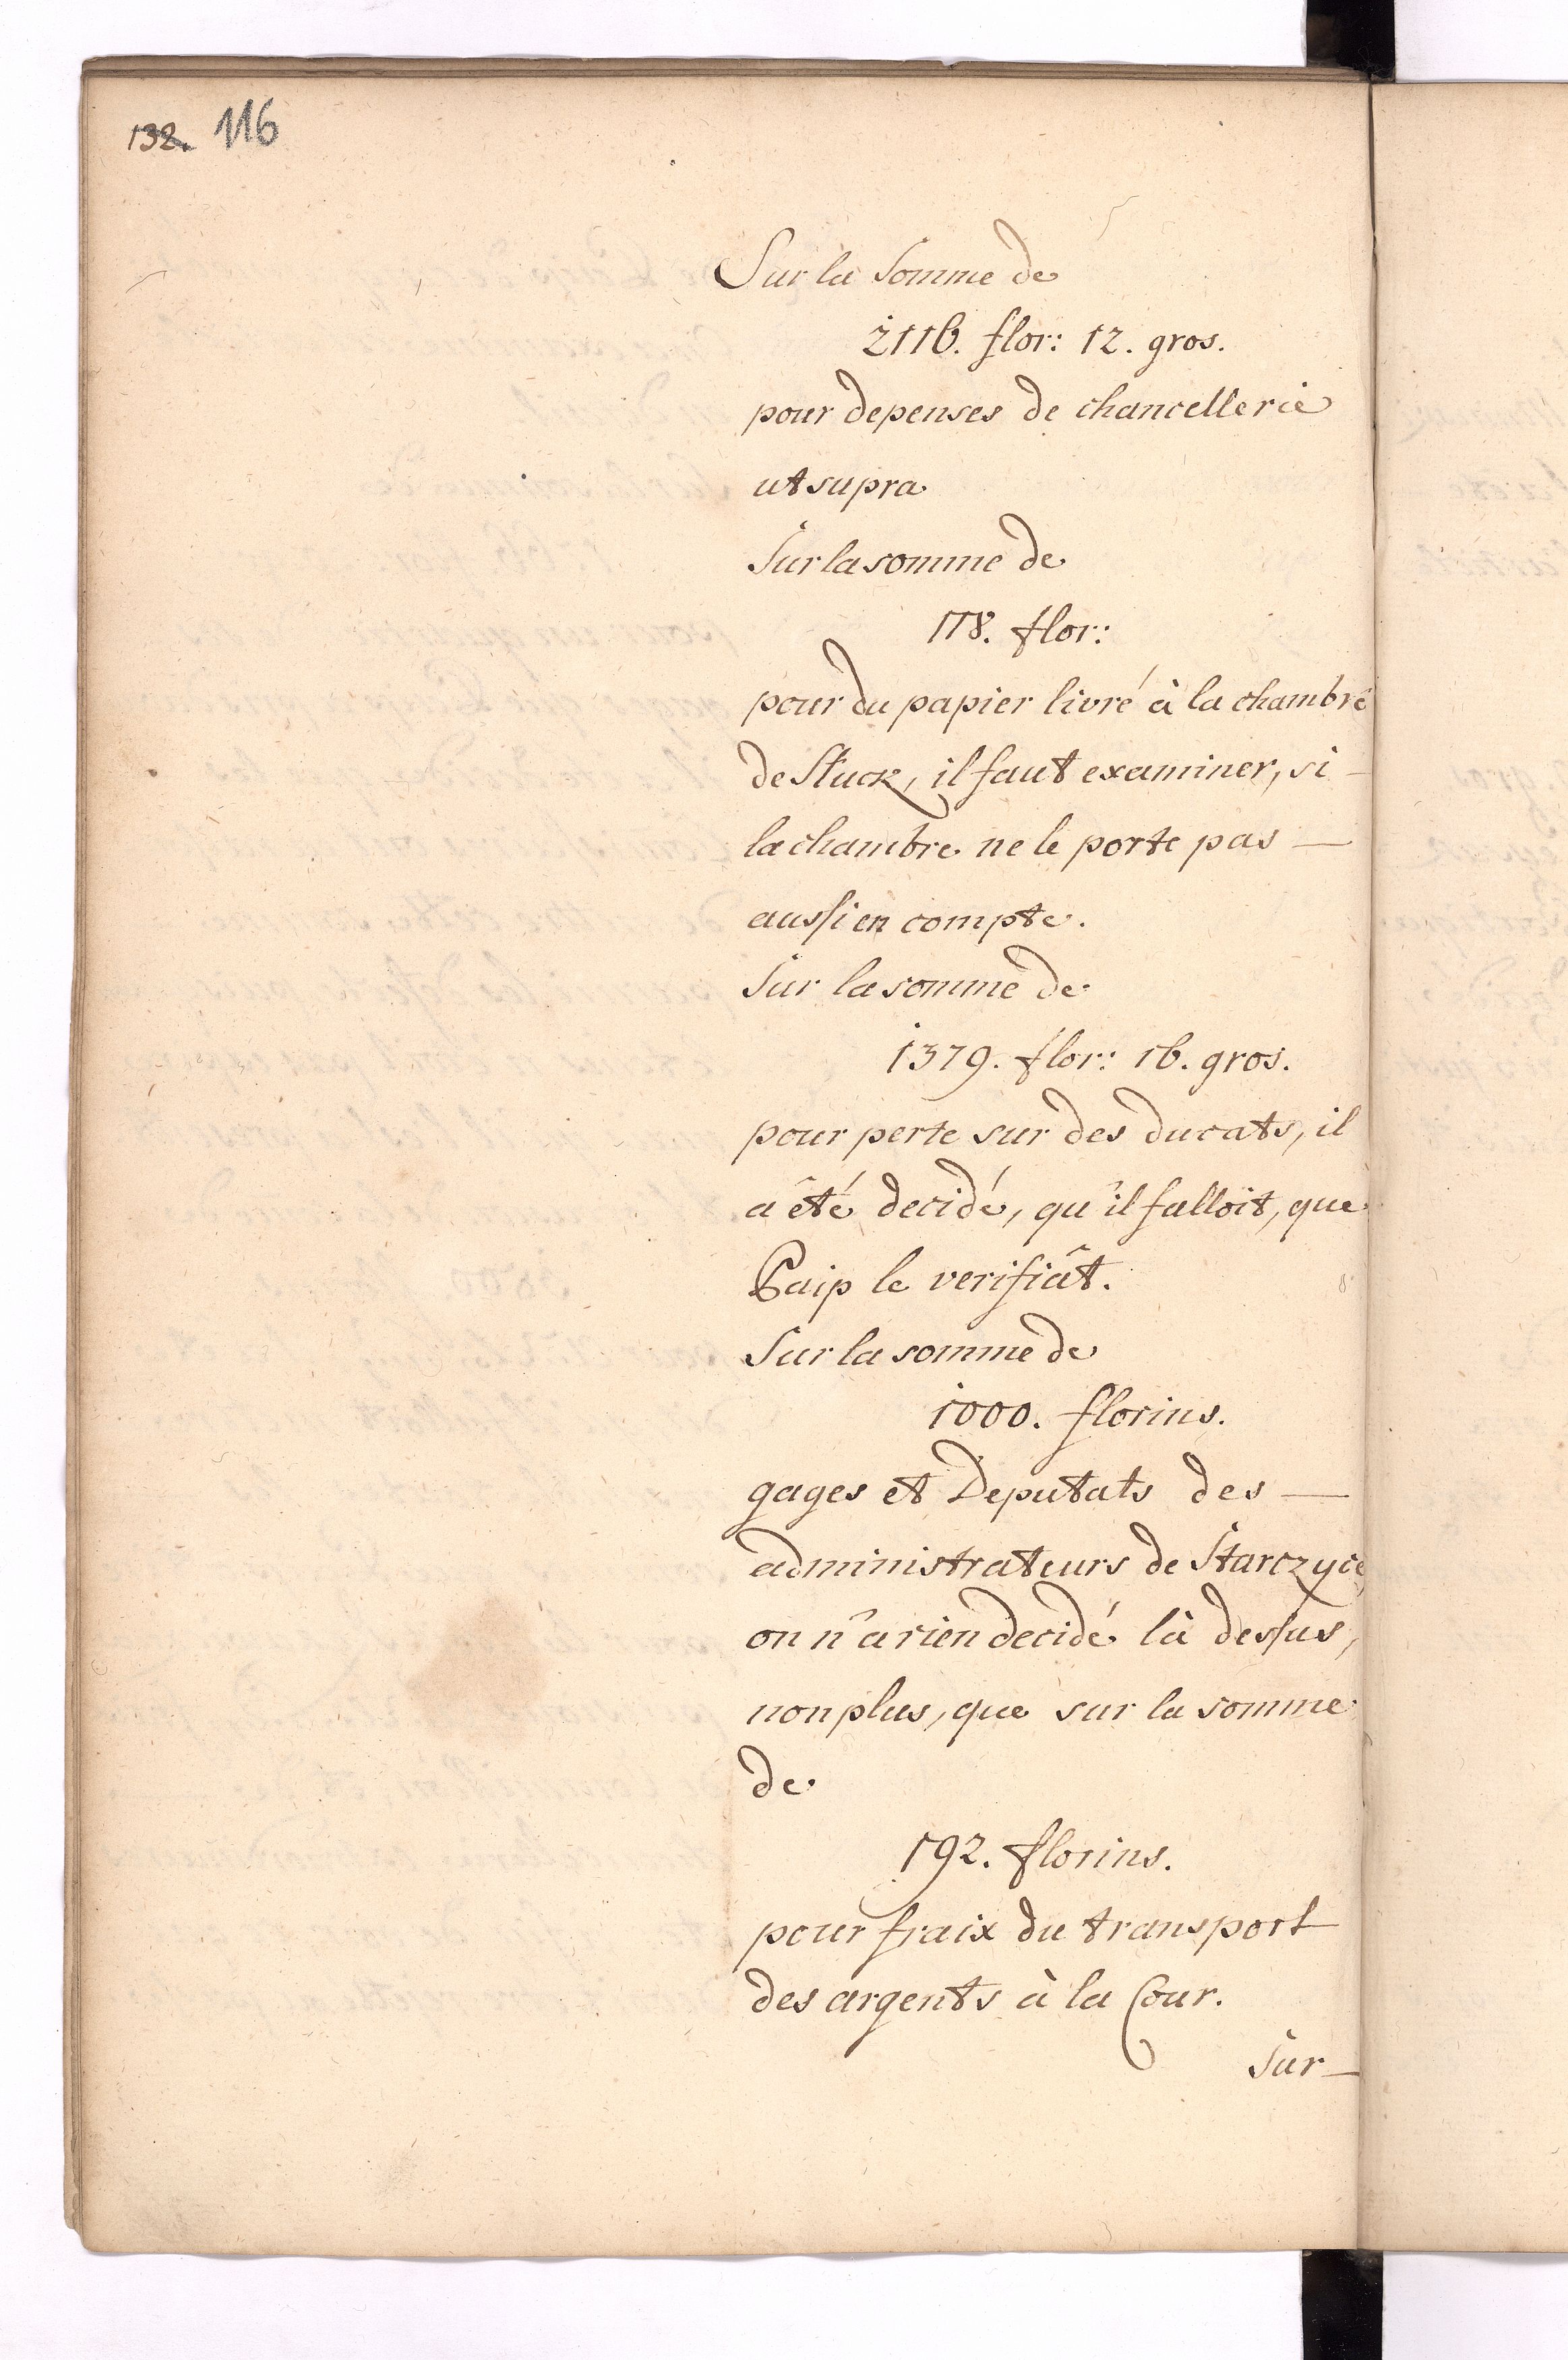 132. 116
Sur la Somme de
2116. flor: 12. gros.
pour depenses de chancellerie
ut supra
Sur la somme de
178. flor:
pour du papier livré à la chambre
de Stuck, il faut examiner, si —
la chambre ne le porte pas —
aussi en compte.
Sur la somme de
1379. flor: 16. gros.
pour perte sur des ducats, il
a été decidé, qu'il falloit, que
Paip le verifiât.
Sur la somme de
1000. florins.
gages et Deputats des —
administrateurs de Starczyce
on n'a rien decidé là dessus,
non plus, que sur la somme
de
192. florins.
pour fraix du transport
des argents à la Cour.
Sur —